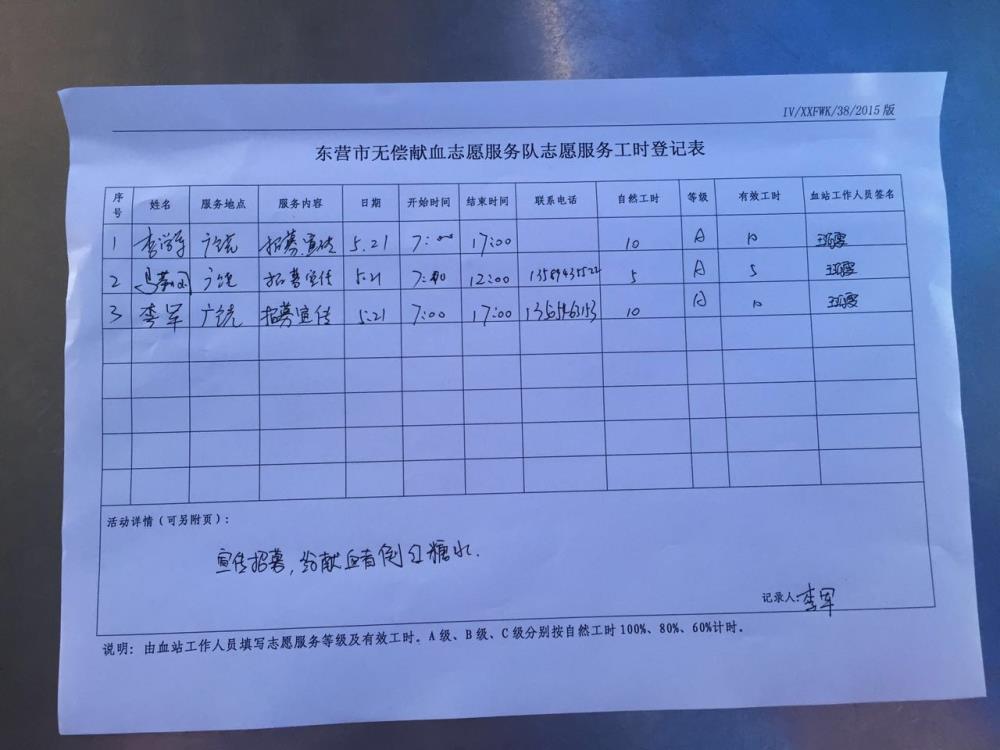 IV/XXFWK/38/2015版
东营市无偿献血志愿服务队志愿服务工时登记表
序号 姓名 服务地点 服务内容 日期 开始时间 结束时间 联系电话 自然工时 等级 有效工时 血站工作人员签名
1 李学军 广饶 招募.宣传 5.21 7:00 17:00 10 A 10
2 广饶 招募宣传 5.21 7:00 12:00 5 A 5
3 李军 广饶 招募宣传 5.21 7:00 17:00 10 A 10
活动详情（可另附页）：
宣传招募，给献血者倒红糖水.
记录人:李军
说明：由血站工作人员填写志愿服务等级及有效工时。A级、B级、C级分别按自然工时100%、80%、60%计时。